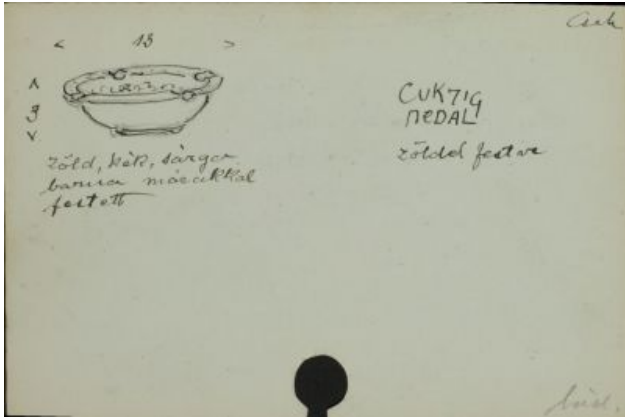 Csík
< 13 >
< 9 >
zöld, kék, sárga
barna mázakkal
festett
CUKZIG
nEDAL
zölddel festve